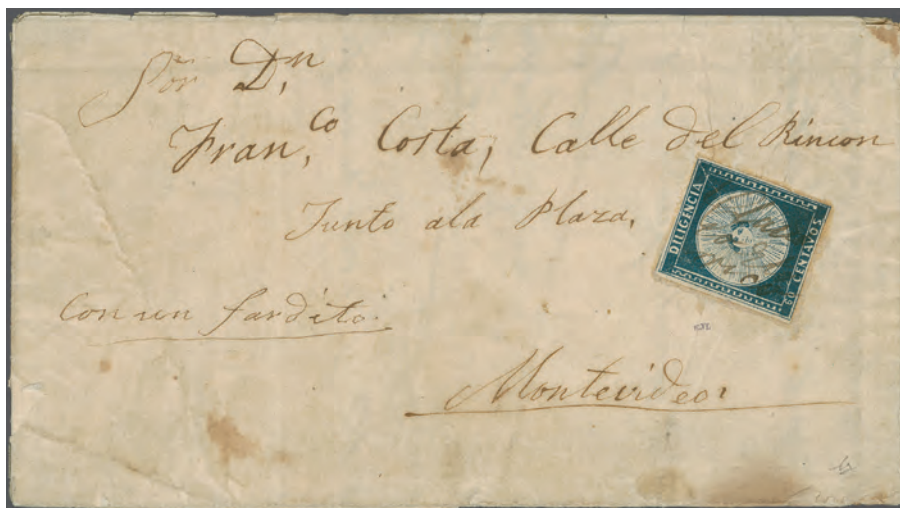 Sõr Dn.
Fran.co Costa, Calle del Rincon
Junto ala Plaza,
DILIGENCIA
60 CENTAVOS
Con un fardito.
Montevideo